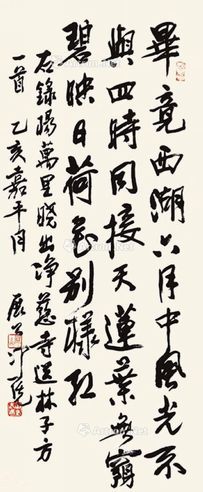 畢竟西湖六月中風光不
與四時同接天蓮葉無窮
碧映日荷花別樣紅
右錄楊萬里曉出净慈寺送林子方
一首 乙亥嘉平月